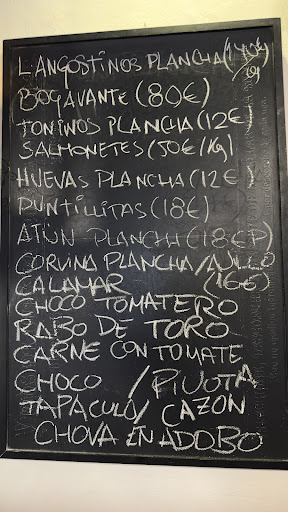 LANGOSTINOS PLANCHA (140€/Kg)
BOGAVANTE (80€)
TONINOS PLANCHA (12€)
SALMONETES (50€/Kg)
HUEVAS PLANCHA (12€)
PUNTILLITAS (18€)
ATÚN PLANCHA (18€P)
CORVINA PLANCHA/AJILLO
CALAMAR (16€)
CHOCO TOMATERO
RABO DE TORO
CARNE CON TOMATE
CHOCO / PIJOTA
TAPACULO / CAZON
CHOVA EN ADOBO